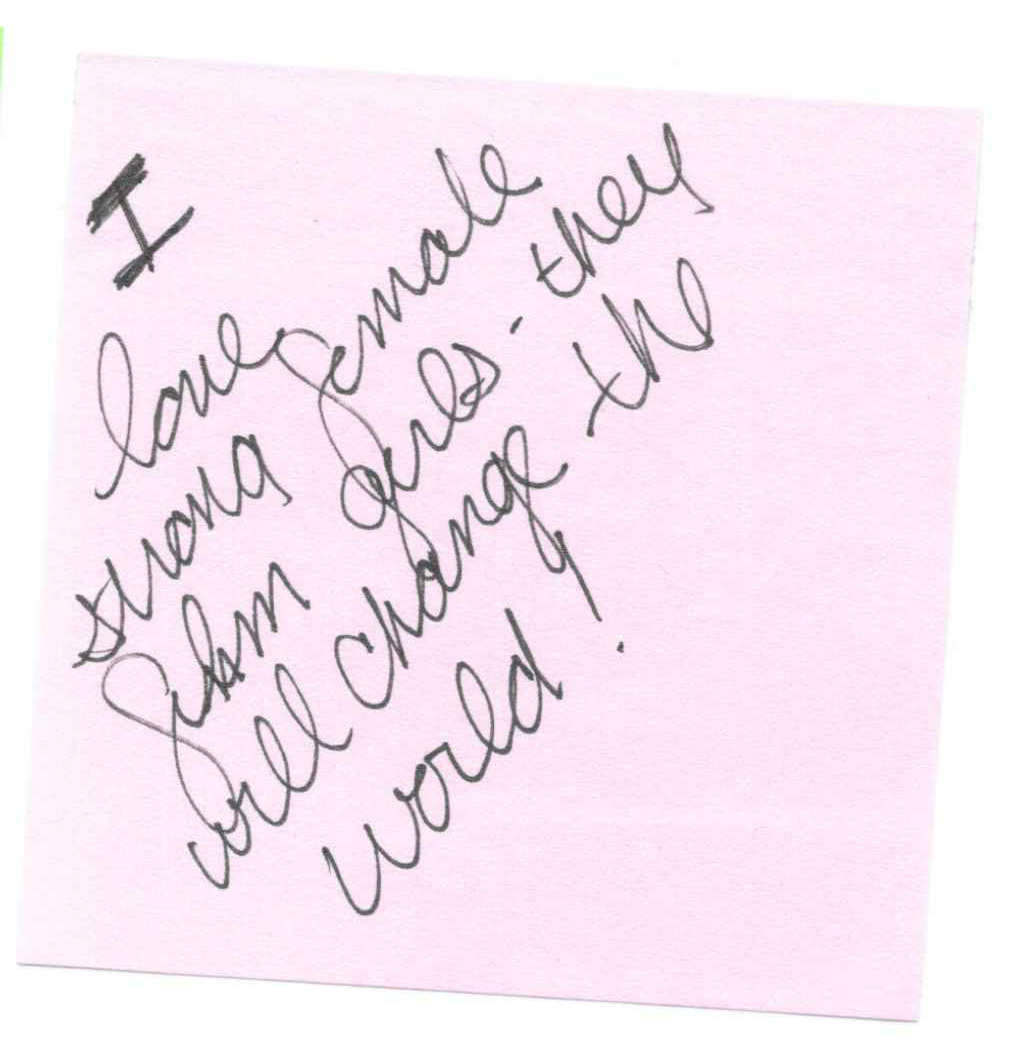 I
love
strong female
film girls - they
will change the
world!